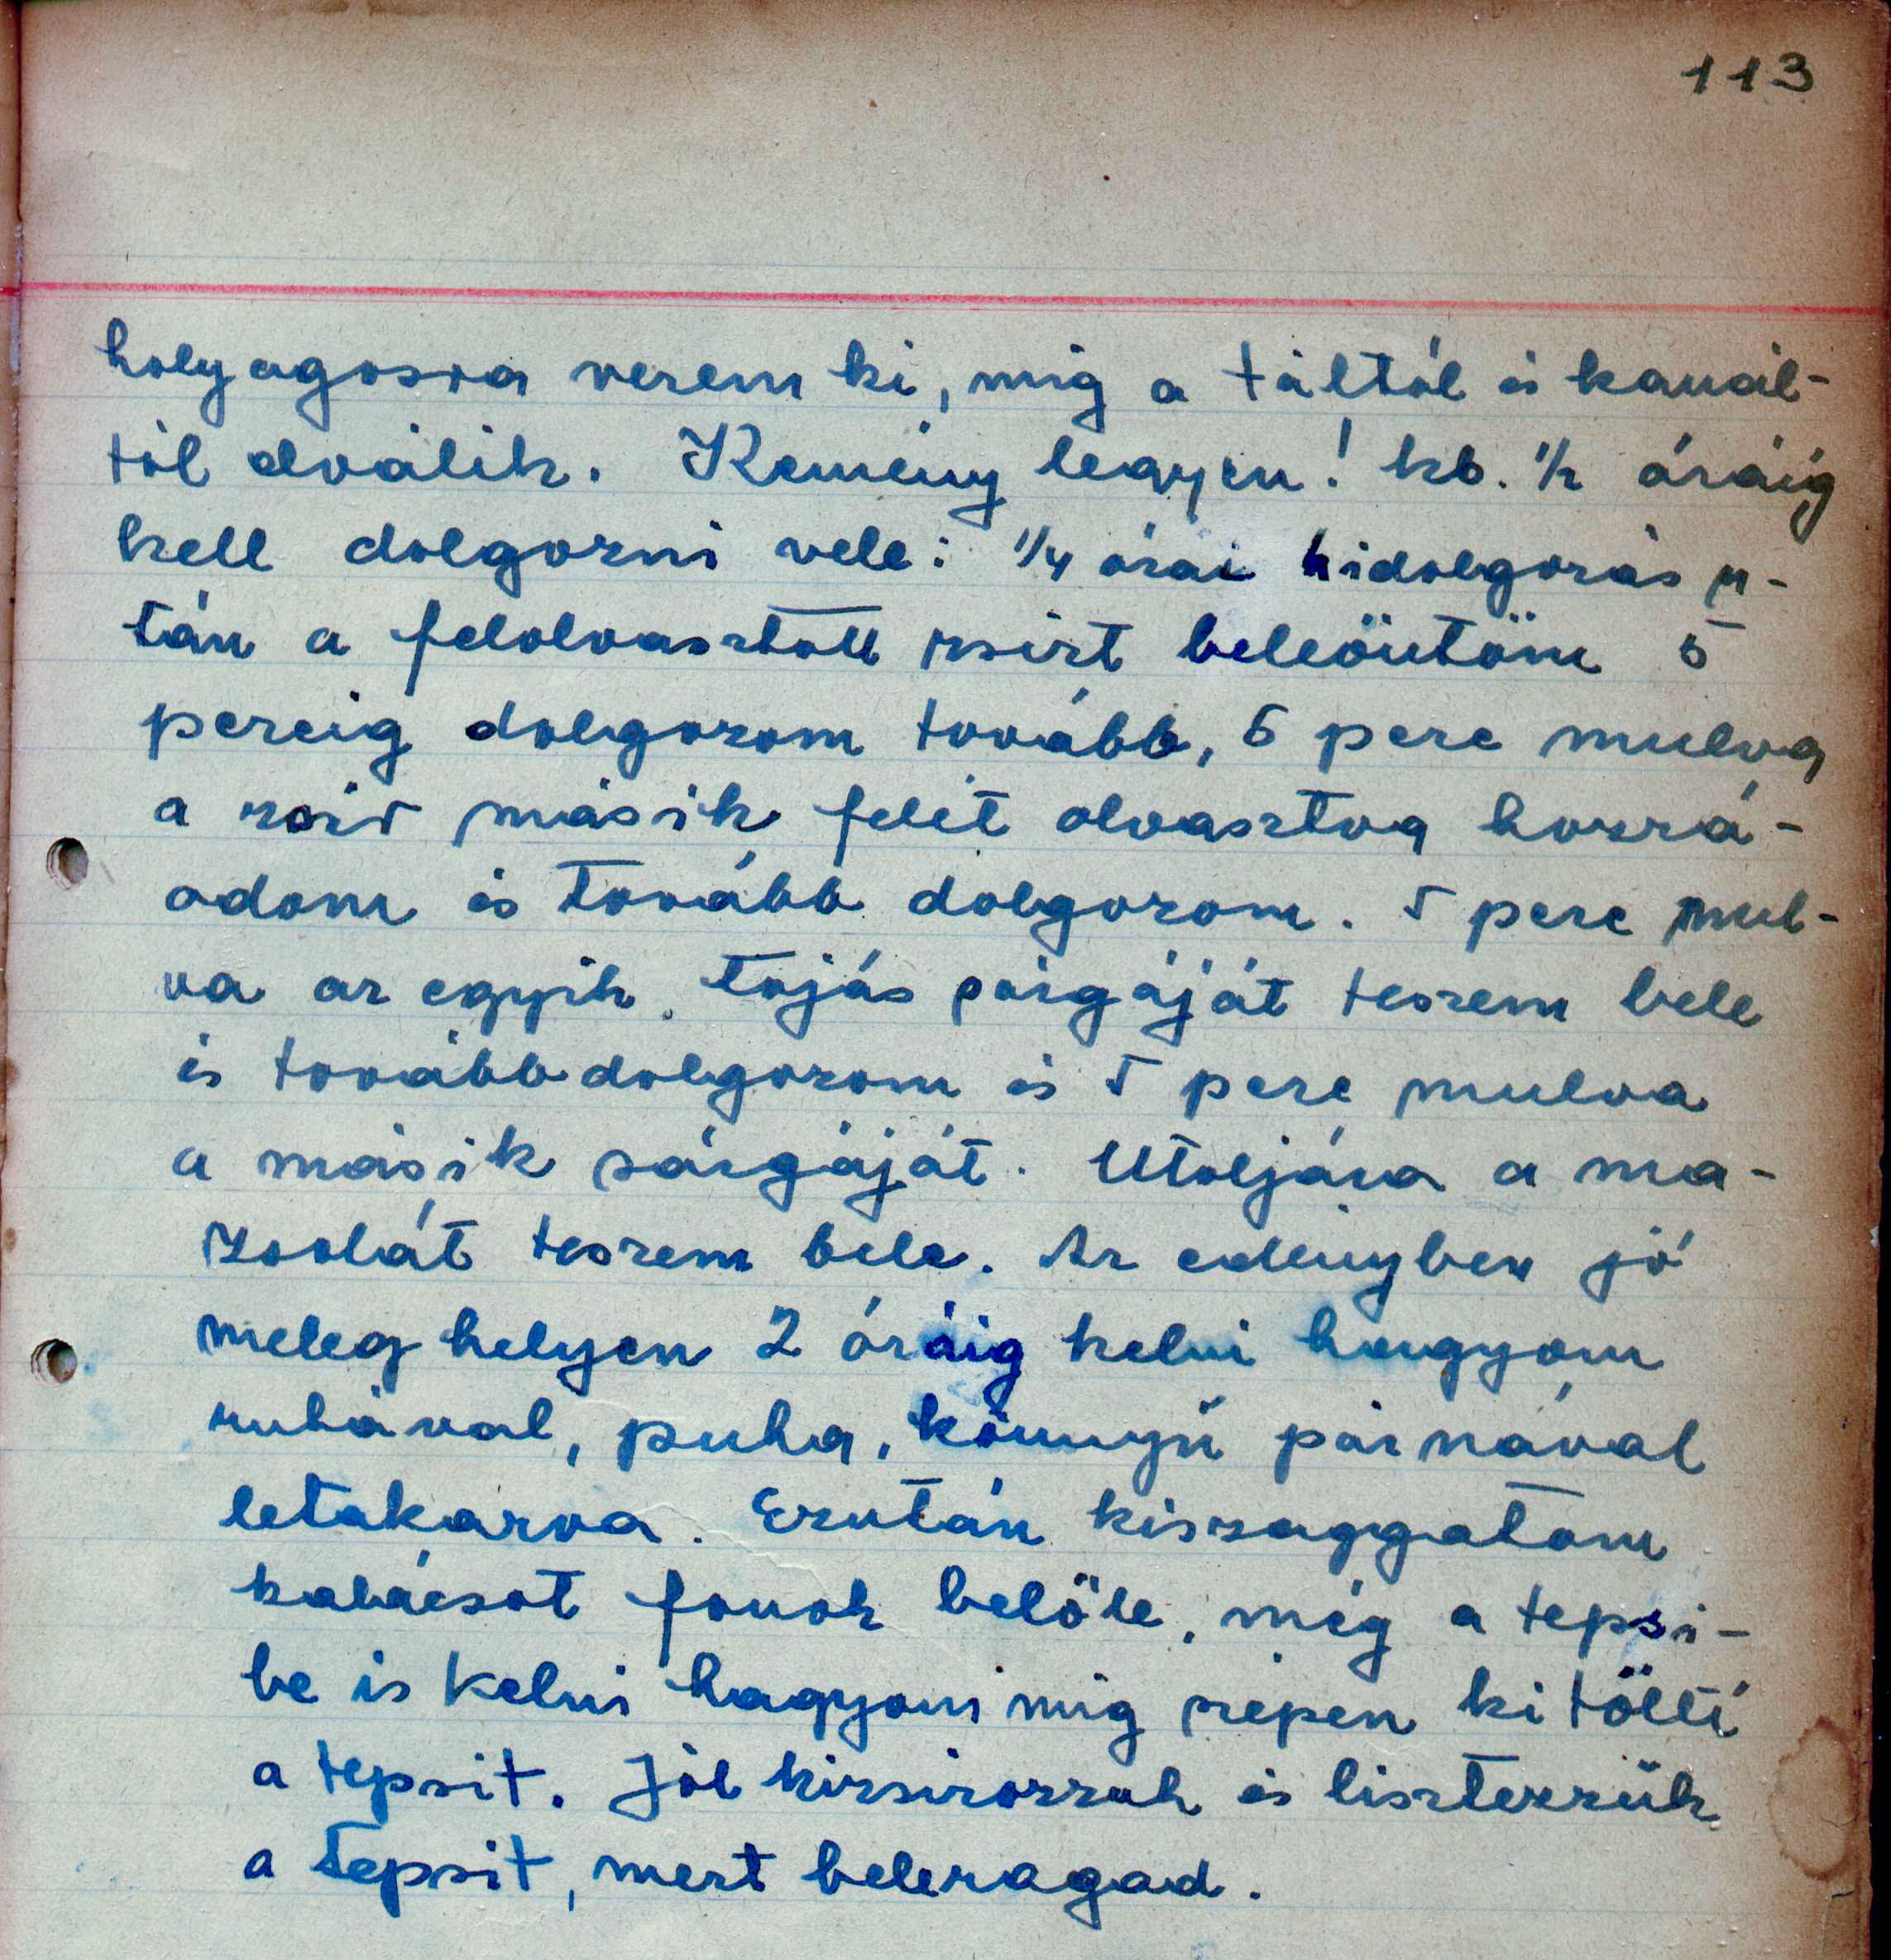 113
holyagosra verem ki, míg a táltól és kanál-
tól elválik. Kemény legyen! kb. 1/2 óráig
kell dolgozni vele: 1/4 órai kidolgozás u-
tán a felolvasztott zsirt beleöntöm 5
percig dolgozom tovább, 5 perc mulva
a zsir másik felét olvasztva hozzá-
adom és tovább dolgozom. 5 perc mul-
va az egyik tojás sárgáját teszem bele
és továbbdolgozom és 5 perc mulva
a másik sárgáját. Utoljára a ma-
zsolát teszem bele. Az edényben jó
meleg helyen 2 óráig kelni hagyom
ruhával, puha, könnyű párnával
letakarva. Ezután kiszaggatom
kalácsot fonok belőle, még a tepsi-
be is kelni hagyom míg szépen ki tölti
a tepsit. Jól kizsirozzuk és lisztezzük
a tepsit, mert beleragad.